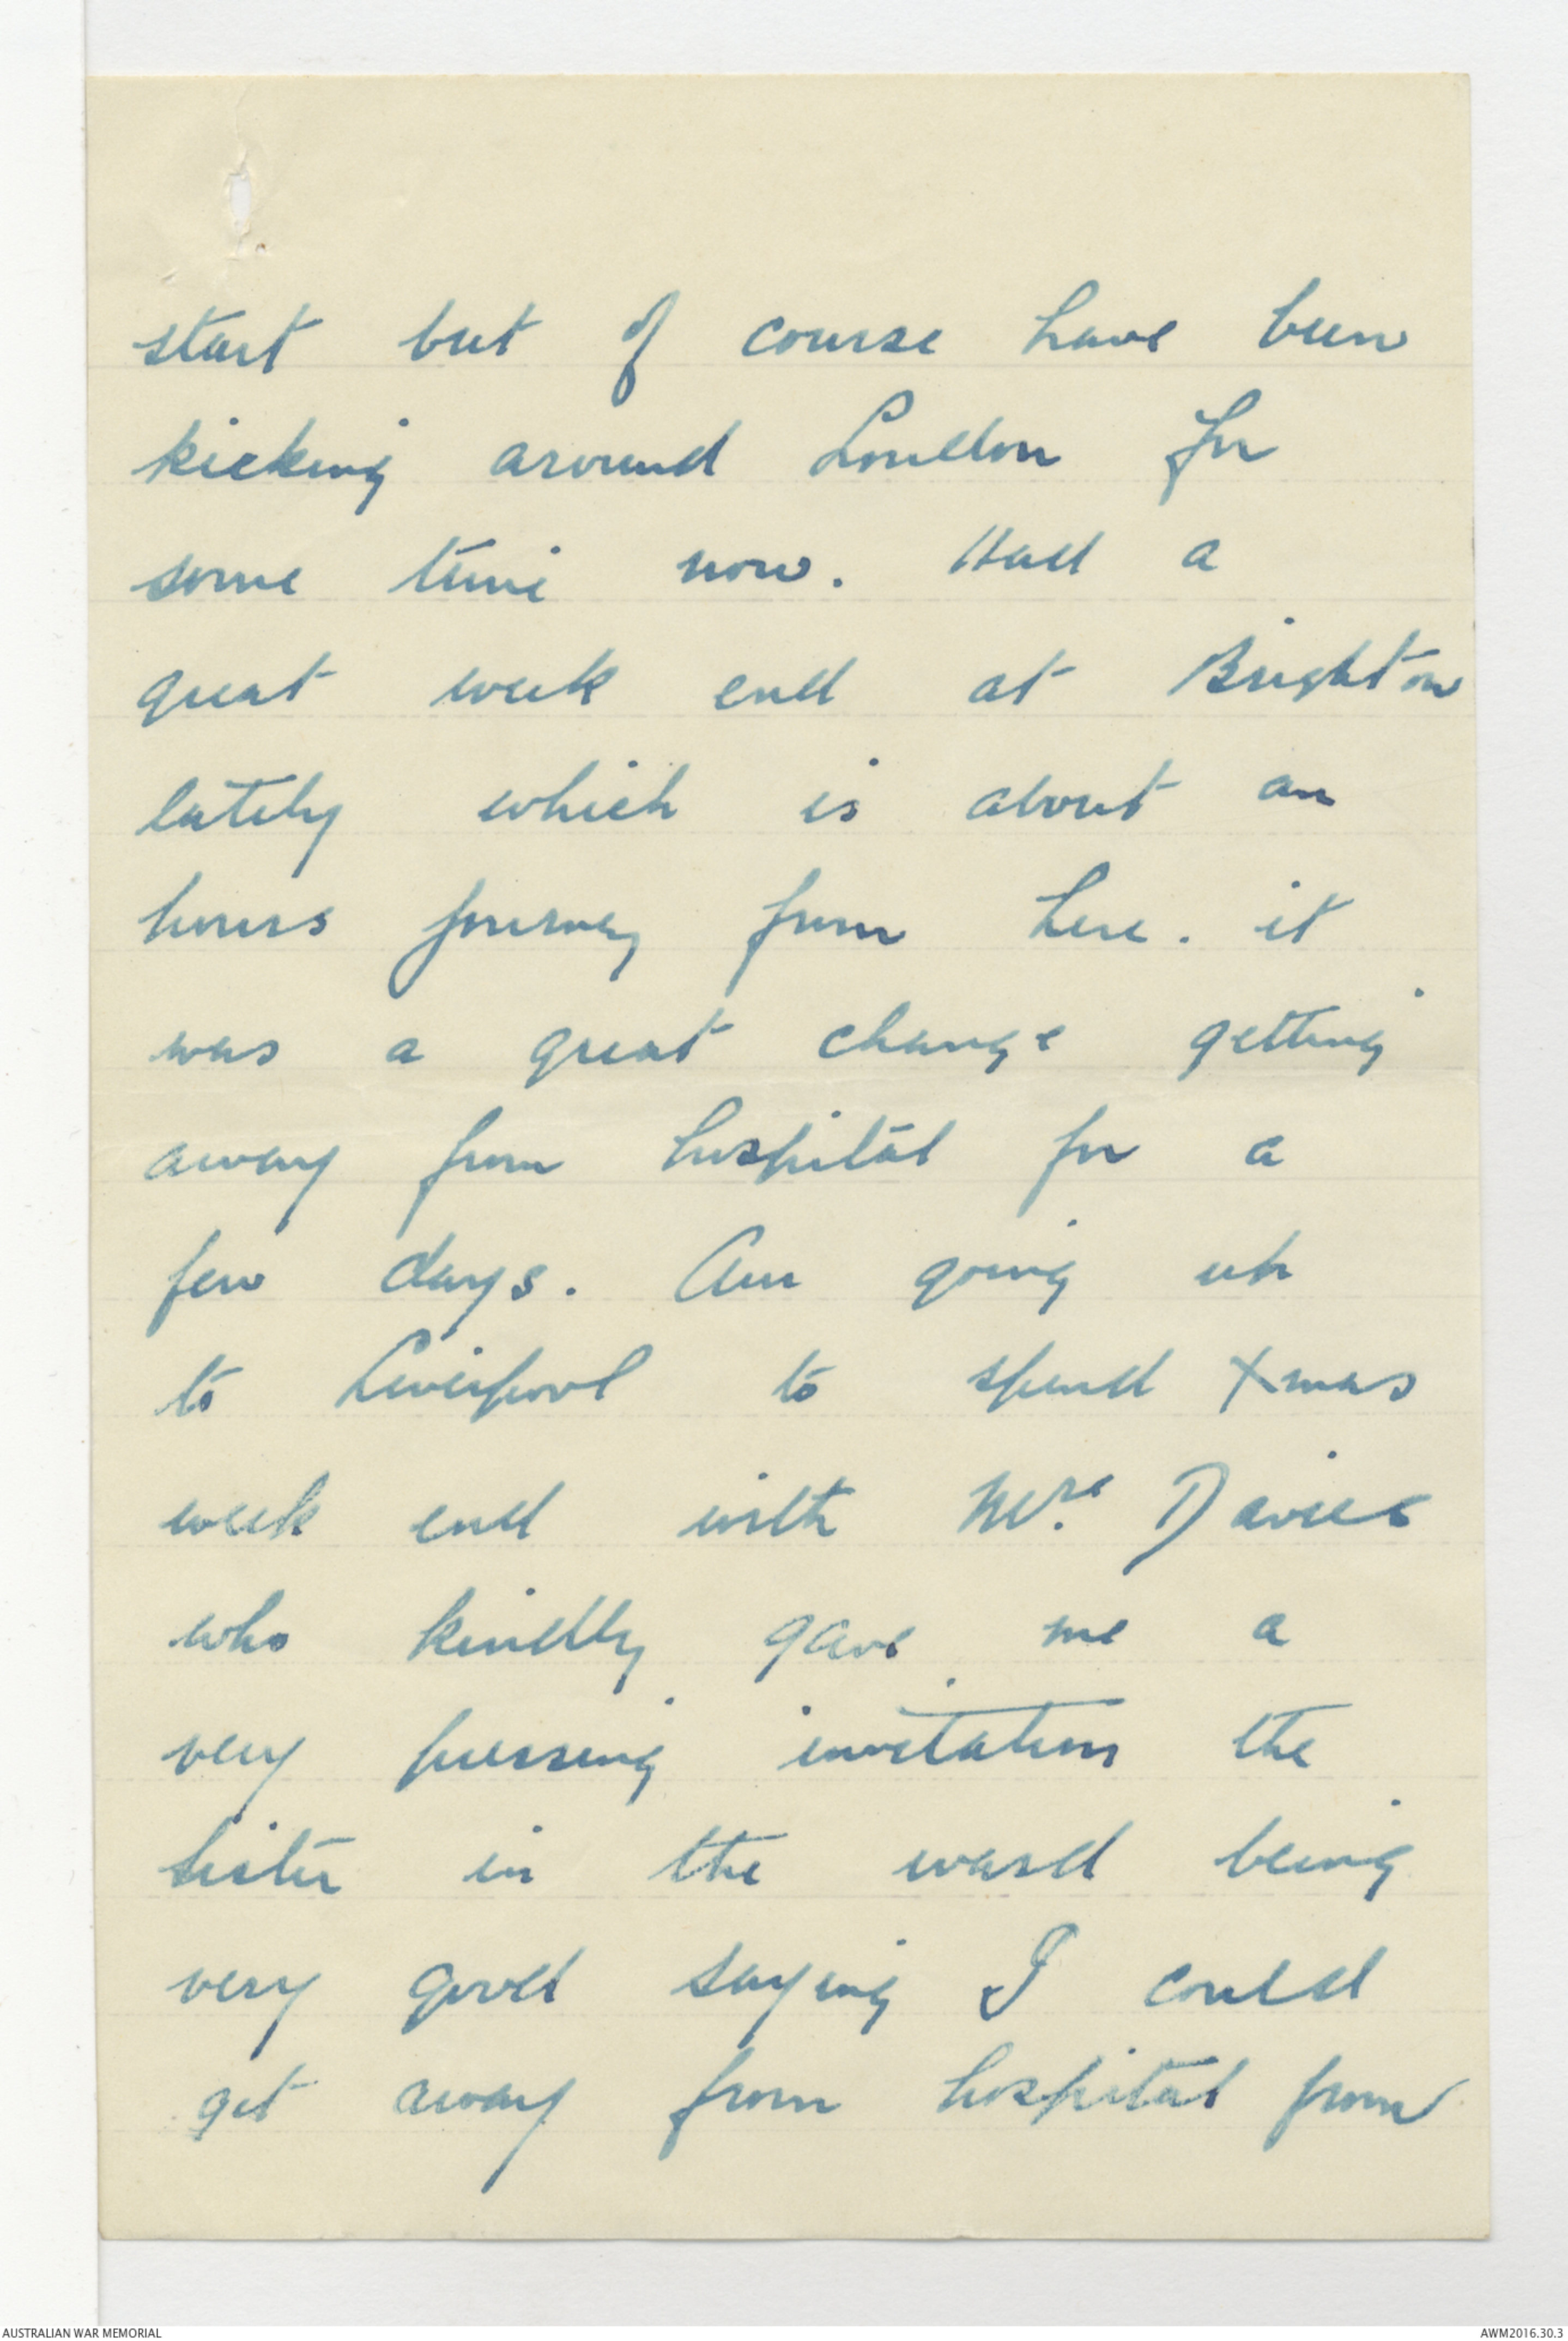 start but of course have been
kicking around London for
some time now. Had a
great week end at Brighton
lately which is about an
hours journey from here. it
was a great change getting
away from hospital for a
few days. Am going up
to Liverpool to spend Xmas
week end with Mrs. Davies
who kindly gave me a
very pressing invitation the
sister in the ward being
very good saying I could
get away from hospital from
AUSTRALIAN WAR MEMORIAL
AWM2016.30.3